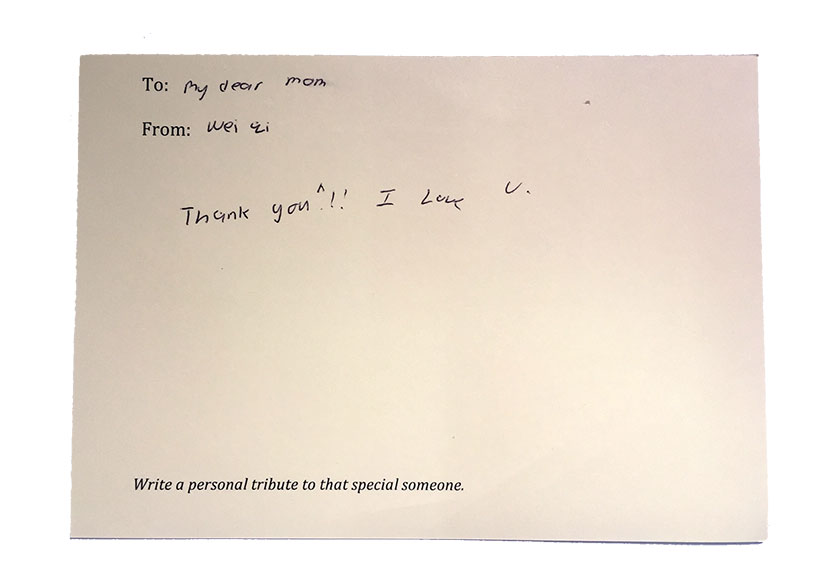 To: My dear mom
From: Wei Qi
Thank you^!!! I Love U.
Write a personal tribute to that special someone.